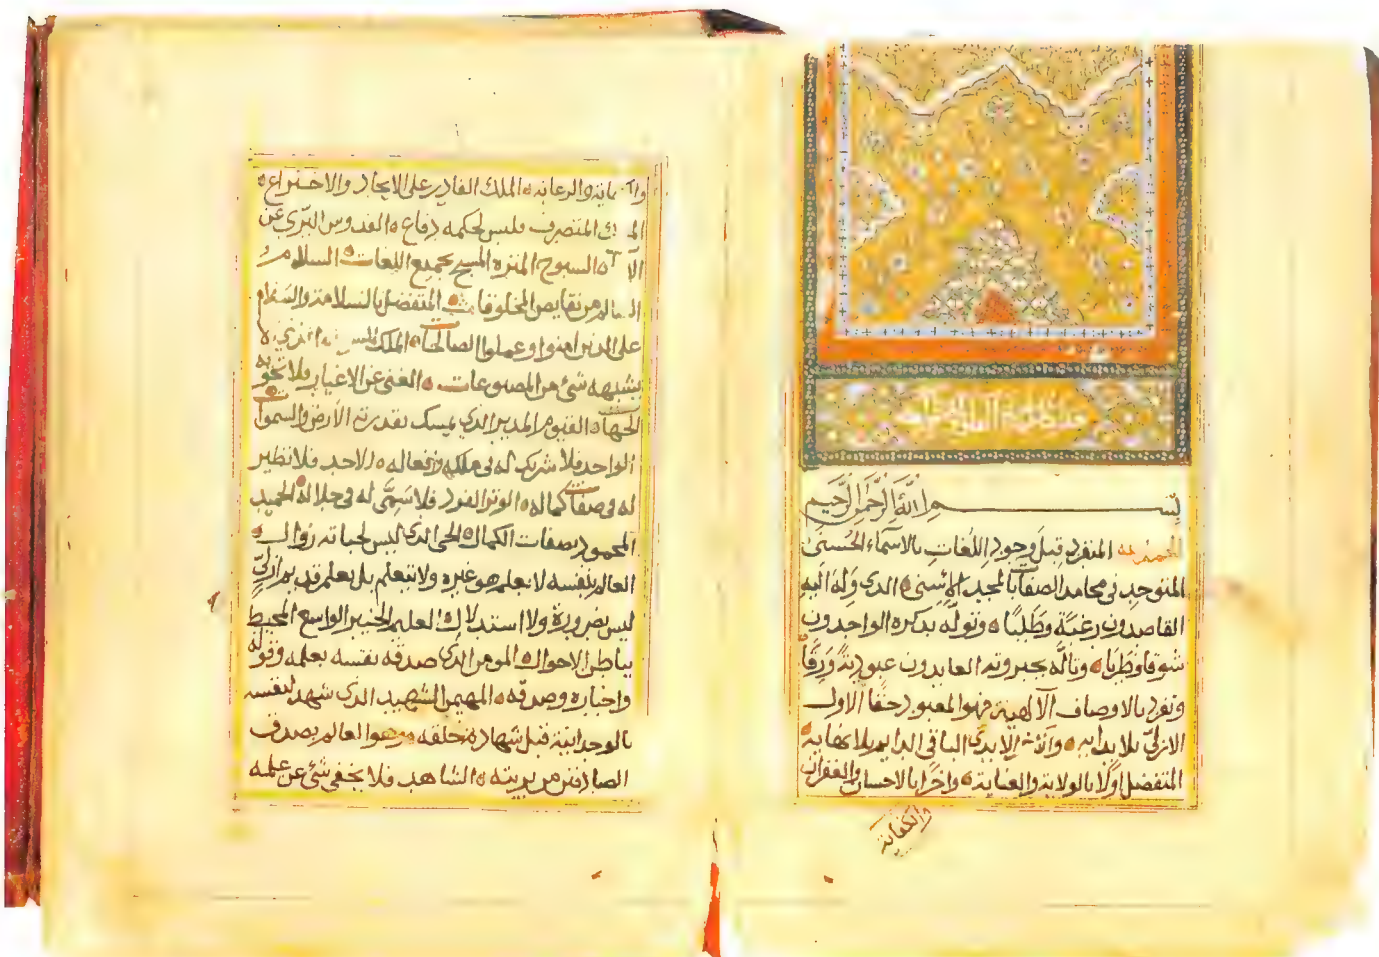 بسم الله الرحمن الرحيم
الحمد لله المنفرد قبل وجود اللغات بالاسماء الحسنى
المتوحد فى محامد الصفات بالمجد الاسنى ه الذى وله اليه
القاصدون رغبة وطلبًا ه وتوله بذكره الواجدون
شوقا وطربا ه وتأله بجبروته العابدون عبودية ورقًا
وتفرد بالاوصاف الآلهية فهو المعبود حقا الاول
الازلى بلا بداية ه الابدى الباقى الدايم بلا نهاية ه
المتفضل اولا بالولاية والعناية ه واخرا بالاحسان والغفران
والكفاية
والرعاية ه الملك القادر على الايجاد والاختراع ه
المتصرف فليس لحكمه دفاع ه القدوس البرى عن
السبوح المنزه المسبح بجميع اللغات ه السلام
من نقايص المخلوقات ه المتفضل بالسلامة والسلام
على الذين امنوا وعملوا الصالحات ه الملك الذى لا
يشبهه شئ من المصنوعات ه الغنى عن الاغيار فلا تحويه
الجهات ه القيوم المدبر الذى يمسك بقدرته الأرض والسموات
الواحد فلا شريك له فى ملكه وافعاله ه الاحد فلا نظير
له فى صفات كماله ه الوتر الفرد فلا سمى له فى جلاله ه الحميد
المحمود بصفات الكمال ه الحى الذى ليس لحياته زوال ه
العالم بنفسه لا بعلم هو غيره ولا بتعلم بل بعلم قديم ازلى
ليس بضرورة ولا استدلال ه العليم الخبير الواسع المحيط
بباطن الاحوال ه المومن الذى صدق نفسه بعلمه وقوله
واخباره وصدقه ه المهيمن الشهيد الذى شهد لنفسه
بالوحدانية قبل شهادة خلقه وهو العالم بصدق
الصادقين من بريته ه الشاهد فلا يخفى شئ عن علمه